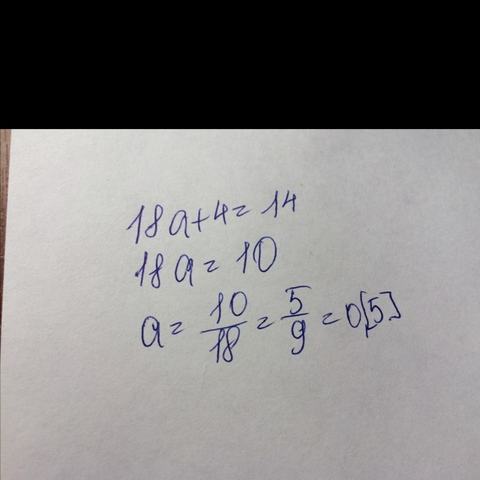 18a+4=14
18a=10
a=10/18=5/9=0[5]